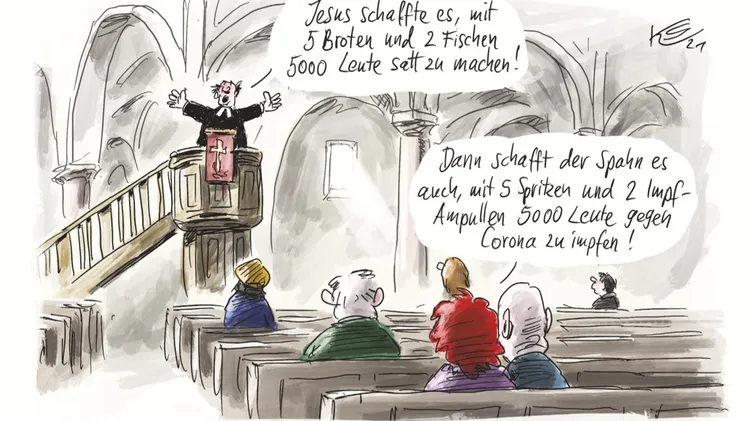 Jesus schaffte es, mit
5 Broten und 2 Fischen
5000 Leute satt zu machen!
Dann schafft der Spahn es
auch, mit 5 Spritzen und 2 Impf-
Ampullen 5000 Leute gegen
Corona zu impfen!